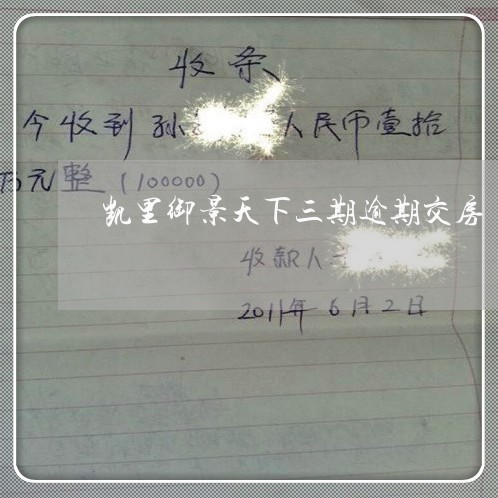 收条
今收到孙 人民币壹拾
万元整（100000）
凯里御景天下三期逾期交房
收款人
2011年6月2日